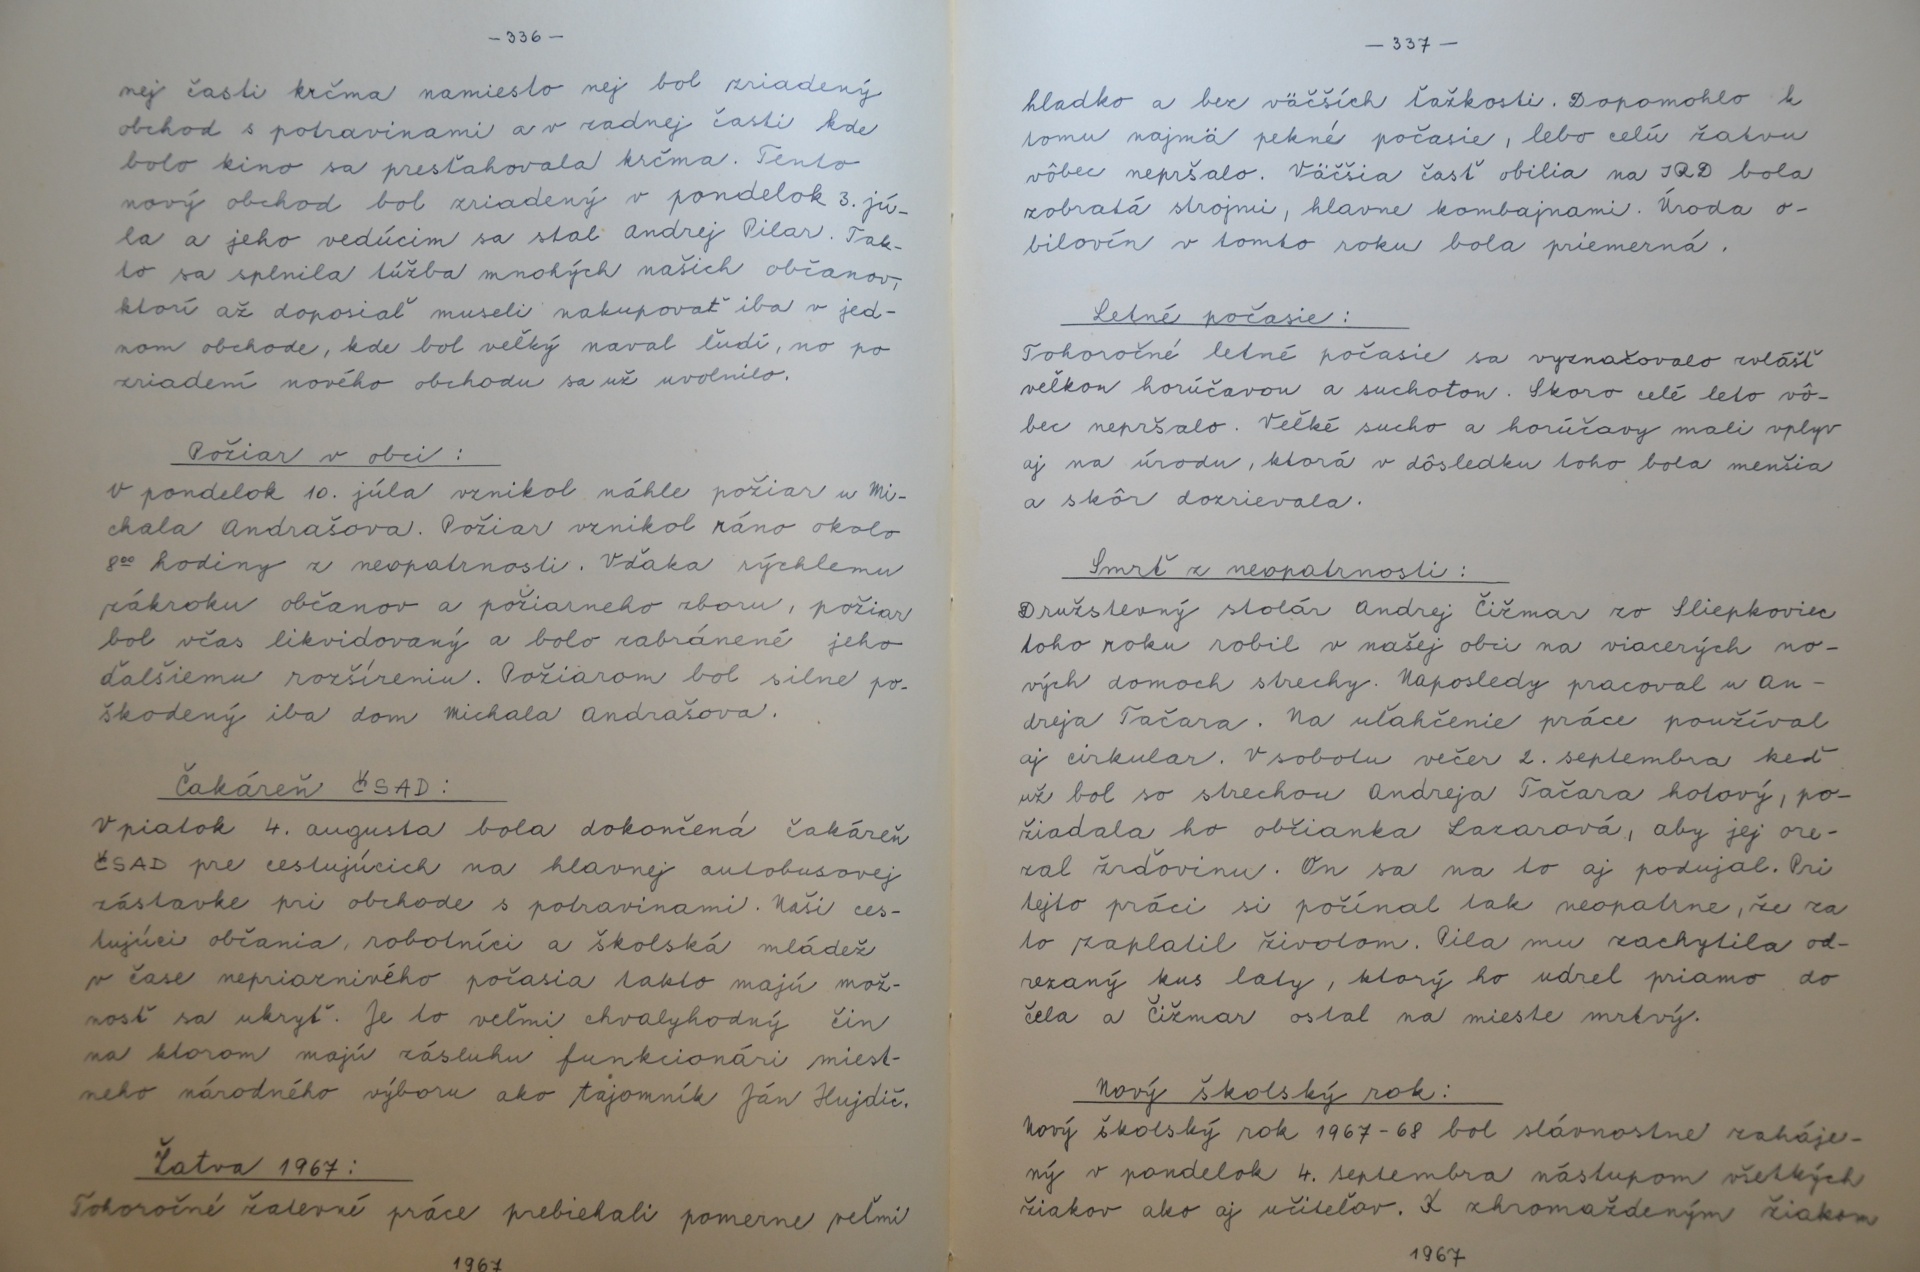 – 336 –
nej časti krčma namiesto nej bol zriadený
obchod s potravinami a v zadnej časti kde
bolo kino sa presťahovala krčma. Tento
nový obchod bol zriadený v pondelok 3. jú-
la a jeho vedúcim sa stal Andrej Pilar. Tak-
to sa splnila túžba mnohých našich občanov,
ktorí až doposiaľ museli nakupovať iba v jed-
nom obchode, kde bol veľký naval ľudí, no po
zriadení nového obchodu sa už uvolnilo.
Požiar v obci:
V pondelok 10. júla vznikol náhle požiar u Mi-
chala Andrašova. Požiar vznikol ráno okolo
8⁰⁰ hodiny z neopatrnosti. Vďaka rýchlemu
zákroku občanov a požiarneho zboru, požiar
bol včas likvidovaný a bolo zabránené jeho
ďalšiemu rozšíreniu. Požiarom bol silne po-
škodený iba dom Michala Andrašova.
Čakáreň ČSAD:
V piatok 4. augusta bola dokončená čakáreň
ČSAD pre cestujúcich na hlavnej autobusovej
zástavke pri obchode s potravinami. Naši ces-
tujúci občania, robotníci a školská mládež
v čase nepriaznivého počasia takto majú mož-
nosť sa ukryť. Je to veľmi chvalyhodný čin
na ktorom majú zásluhu funkcionári miest-
neho národného výboru ako tajomník Ján Hujdič.
Žatva 1967:
Tohoročné žatevné práce prebiehali pomerne veľmi
1967
– 337 –
hladko a bez väčších ťažkosti. Dopomohlo k
tomu najmä pekné počasie, lebo celú žatvu
vôbec nepršalo. Väčšia časť obilia na JRD bola
zobratá strojmi, hlavne kombajnami. Úroda o-
bilovín v tomto roku bola priemerná.
Letné počasie:
Tohoročné letné počasie sa vyznačovalo zvlášť
veľkou horúčavou a suchoťou. Skoro celé leto vô-
bec nepršalo. Veľké sucho a horúčavy mali vplyv
aj na úrodu, ktorá v dôsledku toho bola menšia
a skôr dozrievala.
Smrť z neopatrnosti:
Družstevný stolár Andrej Čižmar zo Sliepkoviec
toho roku robil v našej obci na viacerých no-
vých domoch strechy. Naposledy pracoval u An-
dreja Tačara. Na uľahčenie práce používal
aj cirkular. V sobotu večer 2. septembra keď
už bol so strechou Andreja Tačara hotový, po-
žiadala ho občianka Lazarová, aby jej ore-
zal žrďovinu. On sa na to aj podujal. Pri
tejto práci si počínal tak neopatrne, že za
to zaplatil životom. Pila mu zachytila od-
rezaný kus laty, ktorý ho udrel priamo do
čela a Čižmar ostal na mieste mrtvý.
Nový školský rok:
Nový školský rok 1967-68 bol slávnostne zaháje-
ný v pondelok 4. septembra nástupom všetkých
žiakov ako aj učiteľov. K zhromaždeným žiakom
1967